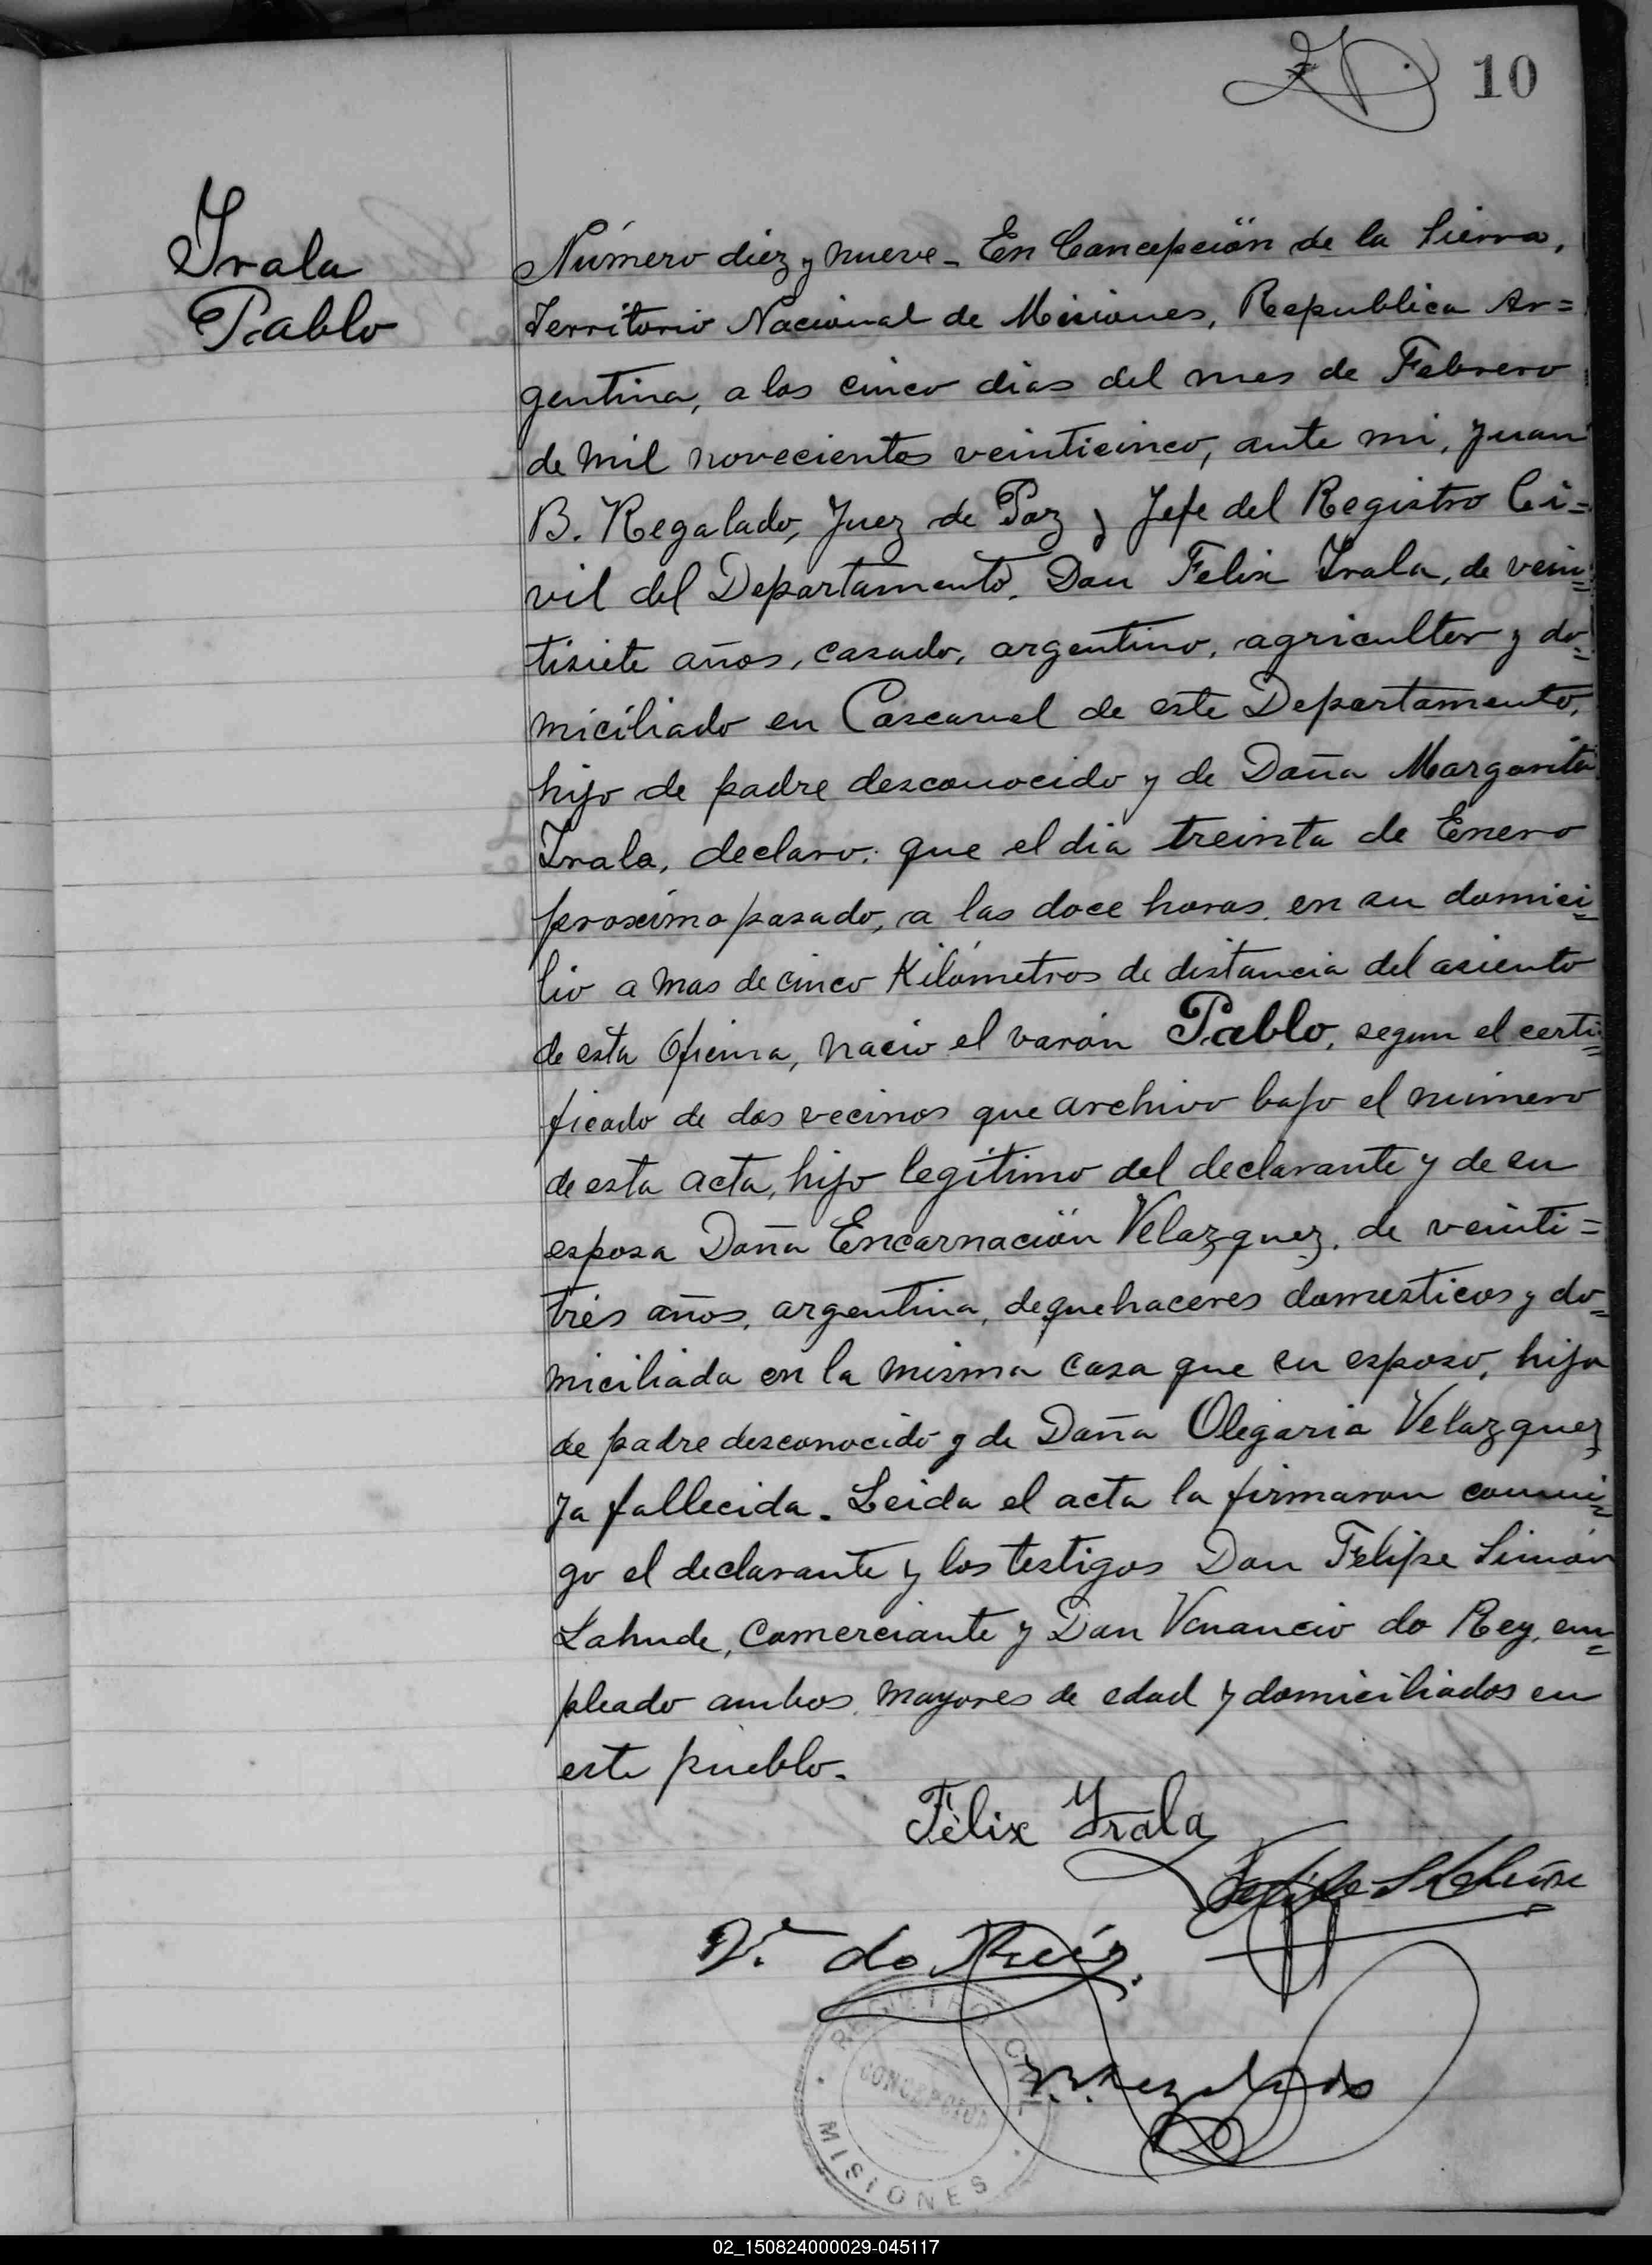 10
Irala
Pablo
Número diez y nueve - En Concepción de la Sierra,
Territorio Nacional de Misiones, Republica Ar=
gentina, a los cinco dias del mes de Febrero
de mil novecientos veinticinco, ante mi, Juan
B. Regalado, Juez de Paz y Jefe del Registro Ci=
vil del Departamento. Don Felix Irala, de vein=
tisiete años, casado, argentino, agricultor y do=
miciliado en Cascarel de este Departamento,
hijo de padre desconocido y de Doña Margarita
Irala, declaro: que el dia treinta de Enero
proximo pasado, a las doce horas, en su domici=
lio a mas de cinco Kilómetros de distancia del asiento
de esta Oficina, nacio el varón Pablo, segun el certi=
ficado de dos vecinos que archivo bajo el número
de esta acta, hijo legítimo del declarante y de su
esposa Doña Encarnación Velazquez, de veinti=
trés años, argentina, de quehaceres domesticos y do=
miciliada en la misma casa que su esposo, hija
de padre desconocido y de Doña Olegaria Velazquez
ya fallecida. Leida el acta la firmaron conmi=
go el declarante y los testigos Don Felipe Simón
Lahude, comerciante y Don Venancio do Rey, em=
pleado ambos mayores de edad y domiciliados en
este pueblo.
Félix Irala
V. do Reis
REGISTRO CIVIL
CONCEPCION
MISIONES
02_150824000029-045117